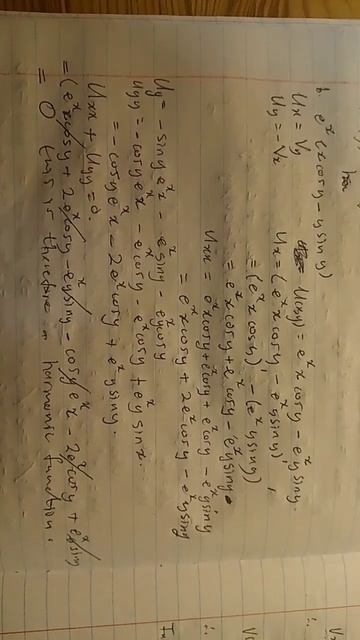 b. e^x (x cos y - y sin y)
Ux = Vy
Uy = Vx
U(x,y) = e^x x cos y - e^x y sin y.
Ux = (e^x x cos y - e^x y sin y)'
= (e^x x cos y)' - (e^x y sin y)'
= e^x x cos y + e^x cos y - e^x y sin y.
Uxx = e^x x cos y + e^x cos y + e^x cos y - e^x y sin y
= e^x x cos y + 2e^x cos y - e^x y sin y
Uy = - sin y e^x x - e^x sin y - e^x y cos y
Uyy = - cos y e^x x - e^x cos y - e^x cos y + e^x y sin x.
= - cos y e^x x - 2e^x cos y + e^x y sin y.
Uxx + Uyy = 0.
= (e^x x cos y + 2e^x cos y - e^x y sin y - cos y e^x x - 2e^x cos y + e^x y sin y
= 0 this is therefore a harmonic function.